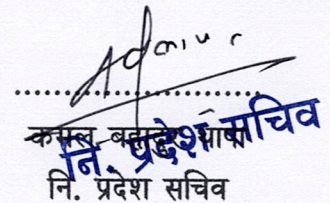 कमल बहादुर थापा
नि. प्रदेश सचिव
नि. प्रदेश सचिव